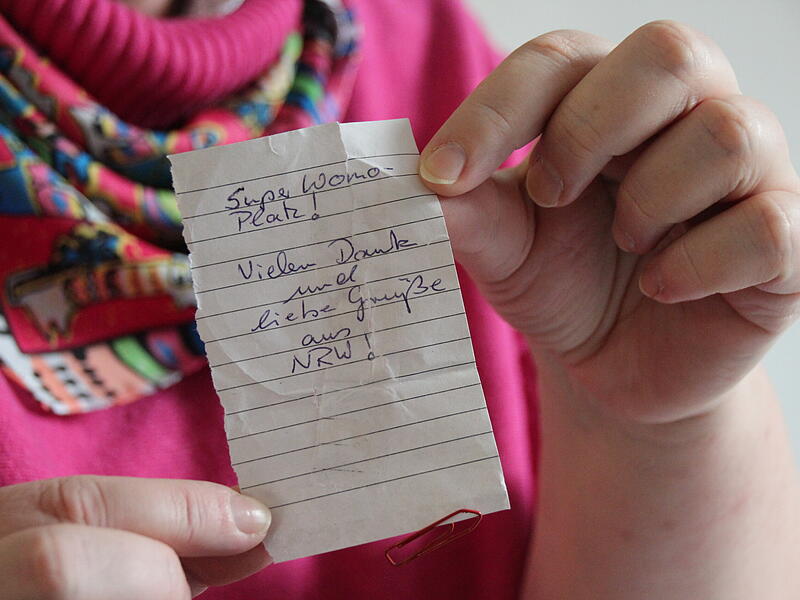 Super Womo-
Platz!
Vielen Dank
und
liebe Grüße
aus
NRW!